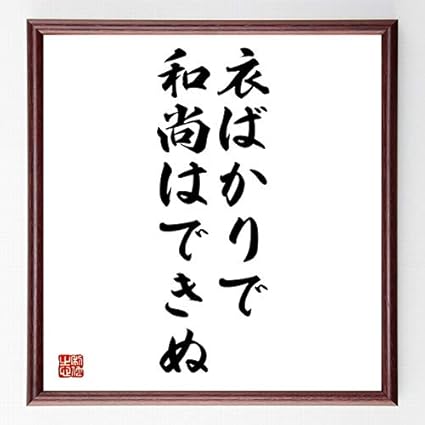 衣ばかりで
和尚はできぬ